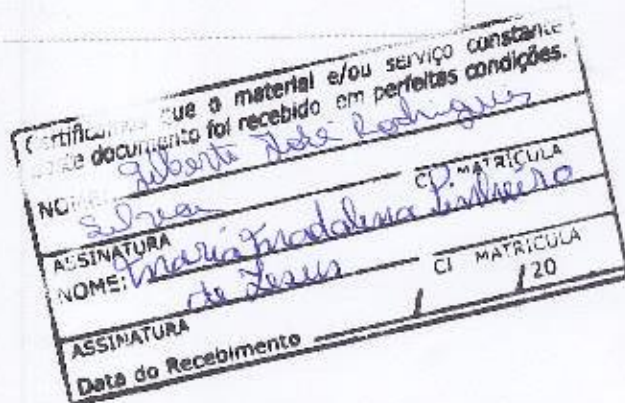 Certificamos que o material e/ou serviço constante
deste documento foi recebido em perfeitas condições.
NOME: Gilberto José Rodrigues
Silva
ASSINATURA CI MATRÍCULA
NOME: Maria Madalena Pinheiro
de Jesus
ASSINATURA CI MATRÍCULA
Data do Recebimento / / 20